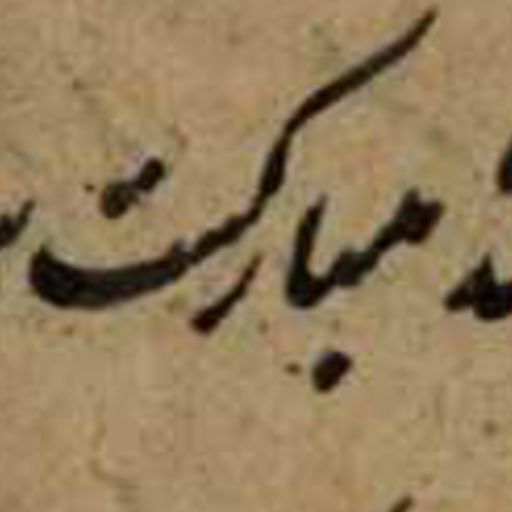 مبارکت